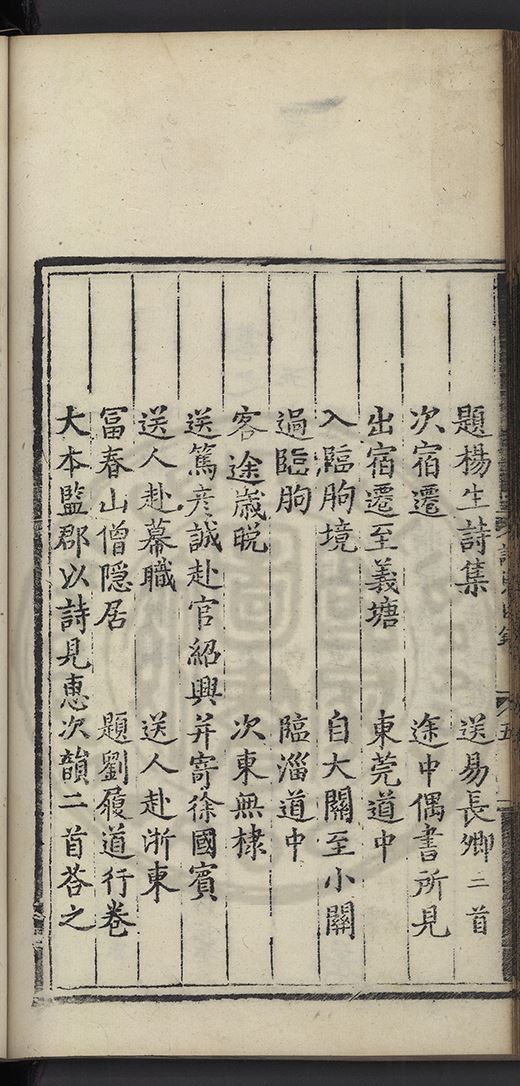 題楊生詩集　送易長卿二首
次宿遷　途中偶書所見
出宿遷至義塘　東莞道中
入臨朐境　自大關至小關
過臨朐　臨淄道中
客途歲晚　次東無棣
送篤彦誠赴官紹興并寄徐國賓
送人赴幕職　送人赴浙東
富春山僧隠居　題劉履道行卷
大本監郡以詩見惠次韻二首荅之